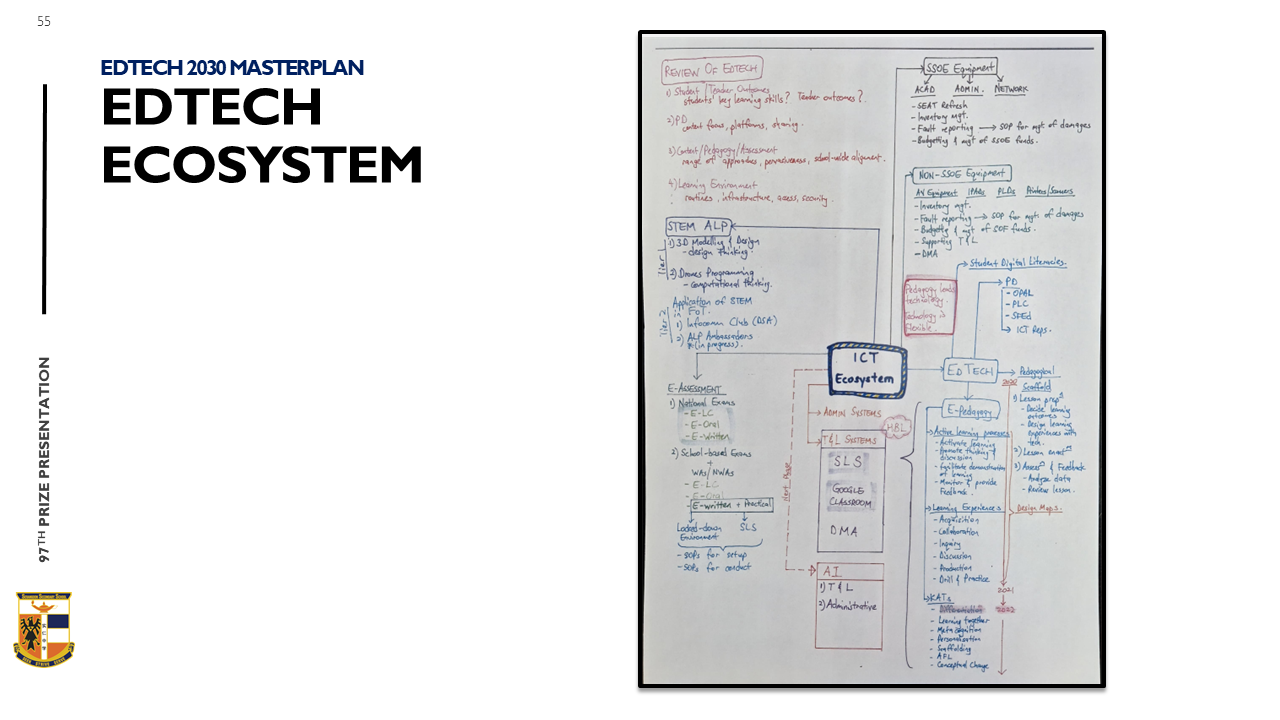 55
EDTECH 2030 MASTERPLAN
EDTECH
ECOSYSTEM
97TH PRIZE PRESENTATION
REVIEW OF EDTECH
1) Student/Teacher Outcomes
students' key learning skills? Teacher outcomes?
2) PD
content focus, platforms, sharing.
3) Content/Pedagogy/Assessment
range of approaches, pervasiveness, school-wide alignment.
4) Learning Environment
routines, infrastructure, access, security.
STEM ALP
Tier 1
1) 3D Modelling & Design
- design thinking.
2) Drones Programming
- Computational thinking.
Tier 2
Application of STEM
IoT.
1) Infocomm Club (DSA)
2) ALP Ambassadors
(in progress).
E-ASSESSMENT
1) National Exams
- E-LC
- E-Oral
- E-Written
2) School-based Exams
+
WAs/NWAs
- E-LC
- E-Oral
- E-written + Practical
Locked-down
Environment
SLS
- SOPs for setup
- SOPs for conduct
ICT
Ecosystem
ADMIN SYSTEMS
HBL
T&L SYSTEMS
SLS
GOOGLE
CLASSROOM
DMA
Next Phase
AI
1) T & L
2) Administrative
SSOE Equipment
ACAD ADMIN. NETWORK
- SEAT Refresh
- Inventory mgt.
- Fault reporting → SOP for mgt of damages
- Budgetting & mgt of SSOE funds.
NON-SSOE Equipment
AV Equipment IPADs PLDs Printers/Scanners
- Inventory mgt.
- Fault reporting → SOP for mgt of damages
- Budgetting & mgt of SOF funds.
- Supporting T&L
- DMA
Student Digital Literacies.
Pedagogy leads
technology.
Technology is
Flexible.
PD
- OPAL
- PLC
- SFEd
ICT Reps.
EDTECH
Pedagogical
Scaffold
2020
1) Lesson prepn
- Decide learning
outcomes
- Design learning
experiences with
tech.
2) Lesson enactmt
3) Assessmt & Feedback
- Analyse data
- Review lesson.
Design Maps.
E-Pedagogy
Active learning processes
- Activate learning
- Promote thinking &
discussion
- Facilitate demonstration
of learning
- Monitor & provide
Feedback.
Learning Experiences
- Acquisition
- Collaboration
- Inquiry
- Discussion
- Production
- Drill & Practice
2021
2022
KATs
- Differentiation
- Learning together
- Metacognition
- Personalisation
- Scaffolding
- AFL
- Conceptual Change